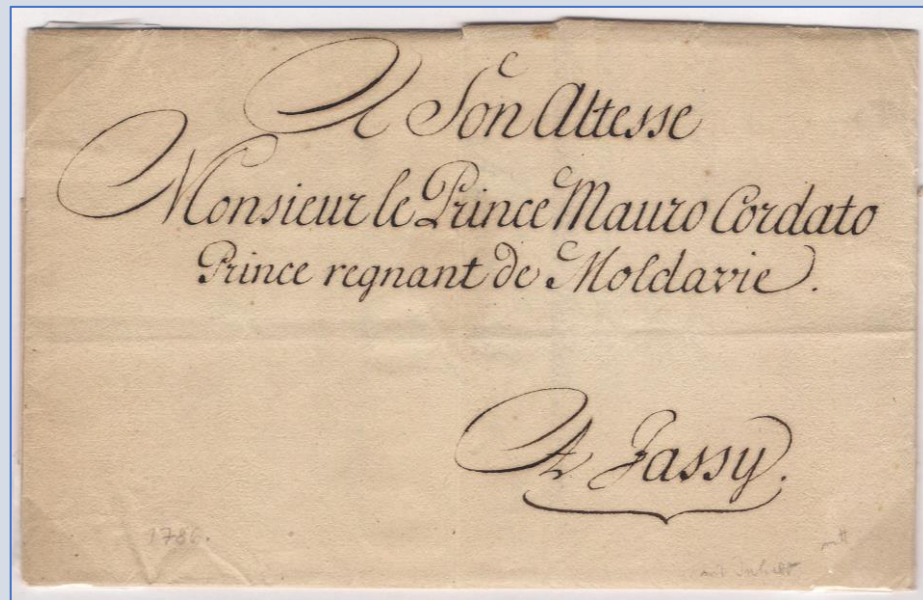 A Son Altesse
Monsieur le Prince Mauro Cordato
Prince regnant de Moldavie.
A Jassy.
1786.
mit Inhalt